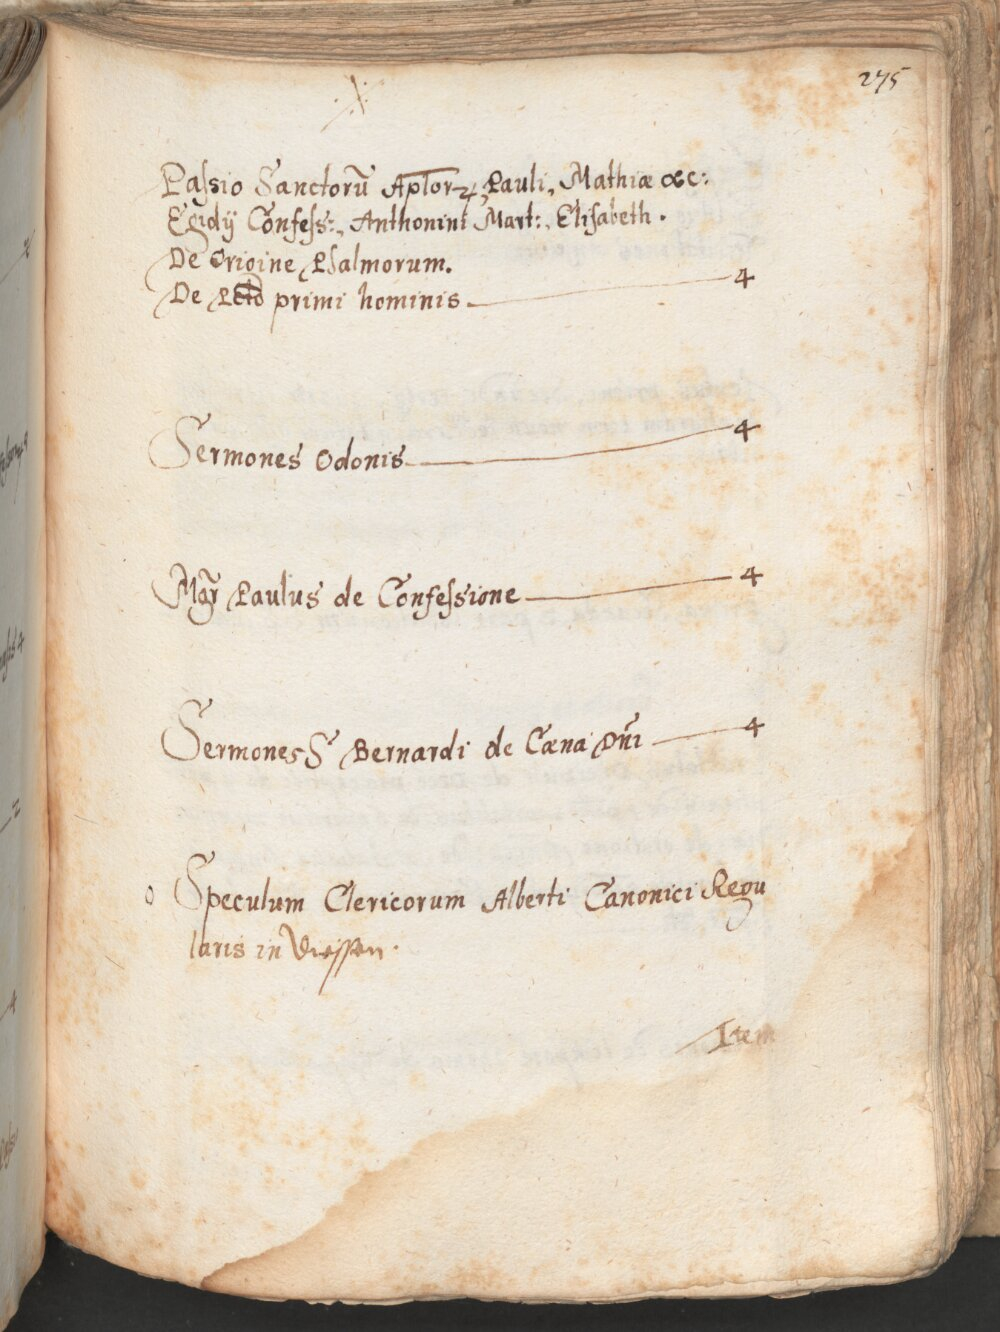 275
X
Passio Sanctorũ Apl̃orꝝ, Pauli, Mathiæ &c:
Egidÿ Confess:, Anthonini Mart:, Elisabeth.
De Origine Psalmorum.
De primi hominis 4
Sermones Odonis 4
Mgr̃ Paulus de Confessione 4
Sermones S Bernardi de Cæna Dñi 4
o Speculum Clericorum Alberti Canonici Regu
laris in Diessen.
Item